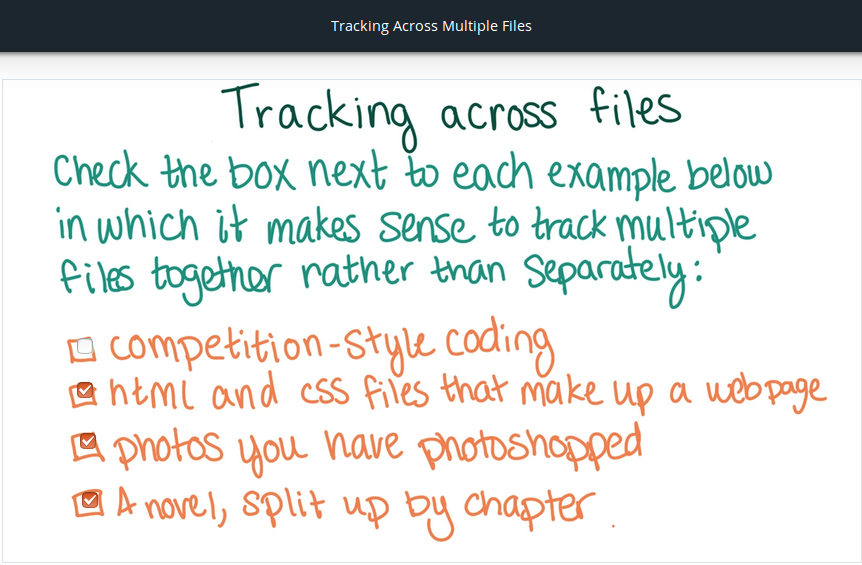 Tracking Across Multiple Files
Tracking across files
Check the box next to each example below
in which it makes sense to track multiple
files together rather than separately:
competition-style coding
html and css files that make up a webpage
photos you have photoshopped
A novel, split up by chapter.